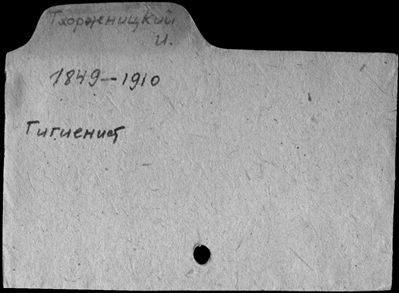 Тхоржницкий
И.
1849-1910
Гигиенист